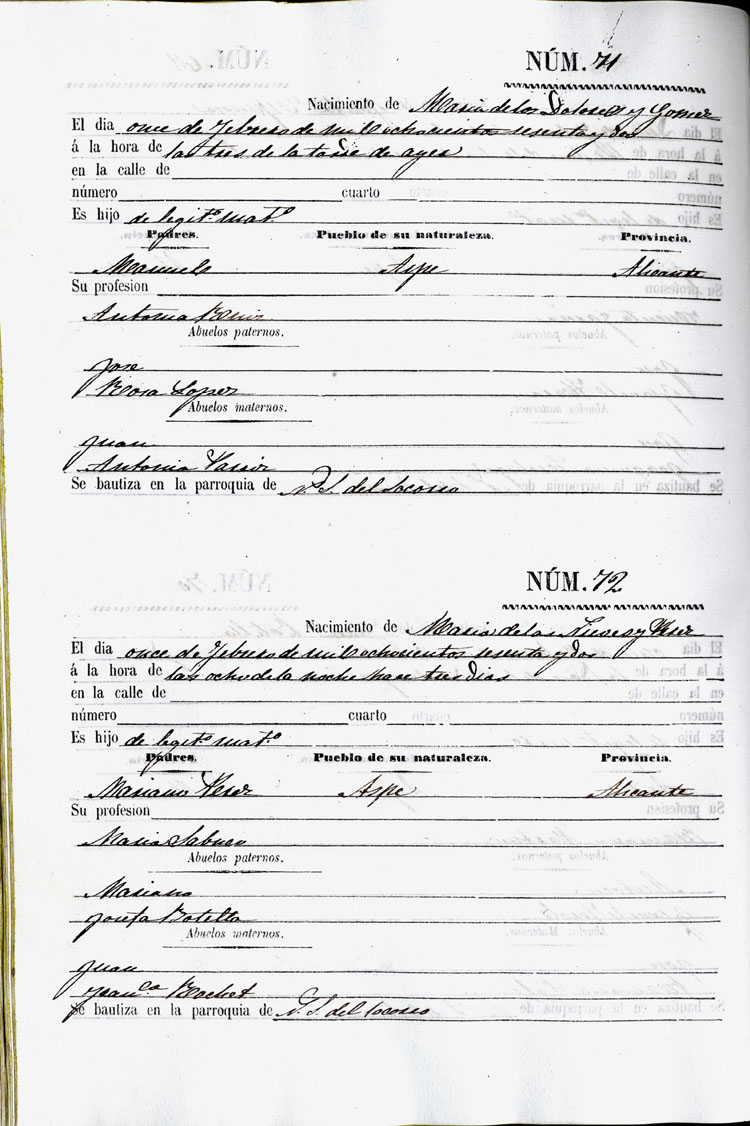 NÚM. 71
Nacimiento de Maria de los Dolores y Gomez
El dia once de Febrero de mil ochocientos sesenta y dos
á la hora de las tres de la tarde de ayer
en la calle de
número cuarto
Es hijo de legit.º mat.º
Padres. Pueblo de su naturaleza. Provincia.
Manuel Aspe Alicante
Su profesion
Antonia
Abuelos paternos.
Jose
Rosa Lopez
Abuelos maternos.
Juan
Antonia
Se bautiza en la parroquia de N. S. del Socorro
NÚM. 72
Nacimiento de Maria de las Nieves y Perez
El dia once de Febrero de mil ochocientos sesenta y dos
á la hora de las ocho de la noche hace tres dias
en la calle de
número cuarto
Es hijo de legit.º mat.º
Padres. Pueblo de su naturaleza. Provincia.
Mariano Perez Aspe Alicante
Su profesion
Maria Sabuco
Abuelos paternos.
Mariano
Josefa Botella
Abuelos maternos.
Juan
Fran.ca
Se bautiza en la parroquia de N. S. del Socorro